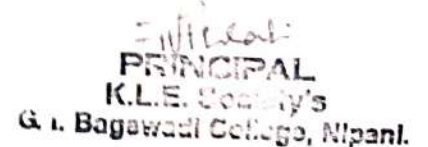 PRINCIPAL
K.L.E. Society's
G. I. Bagawadi College, Nipani.